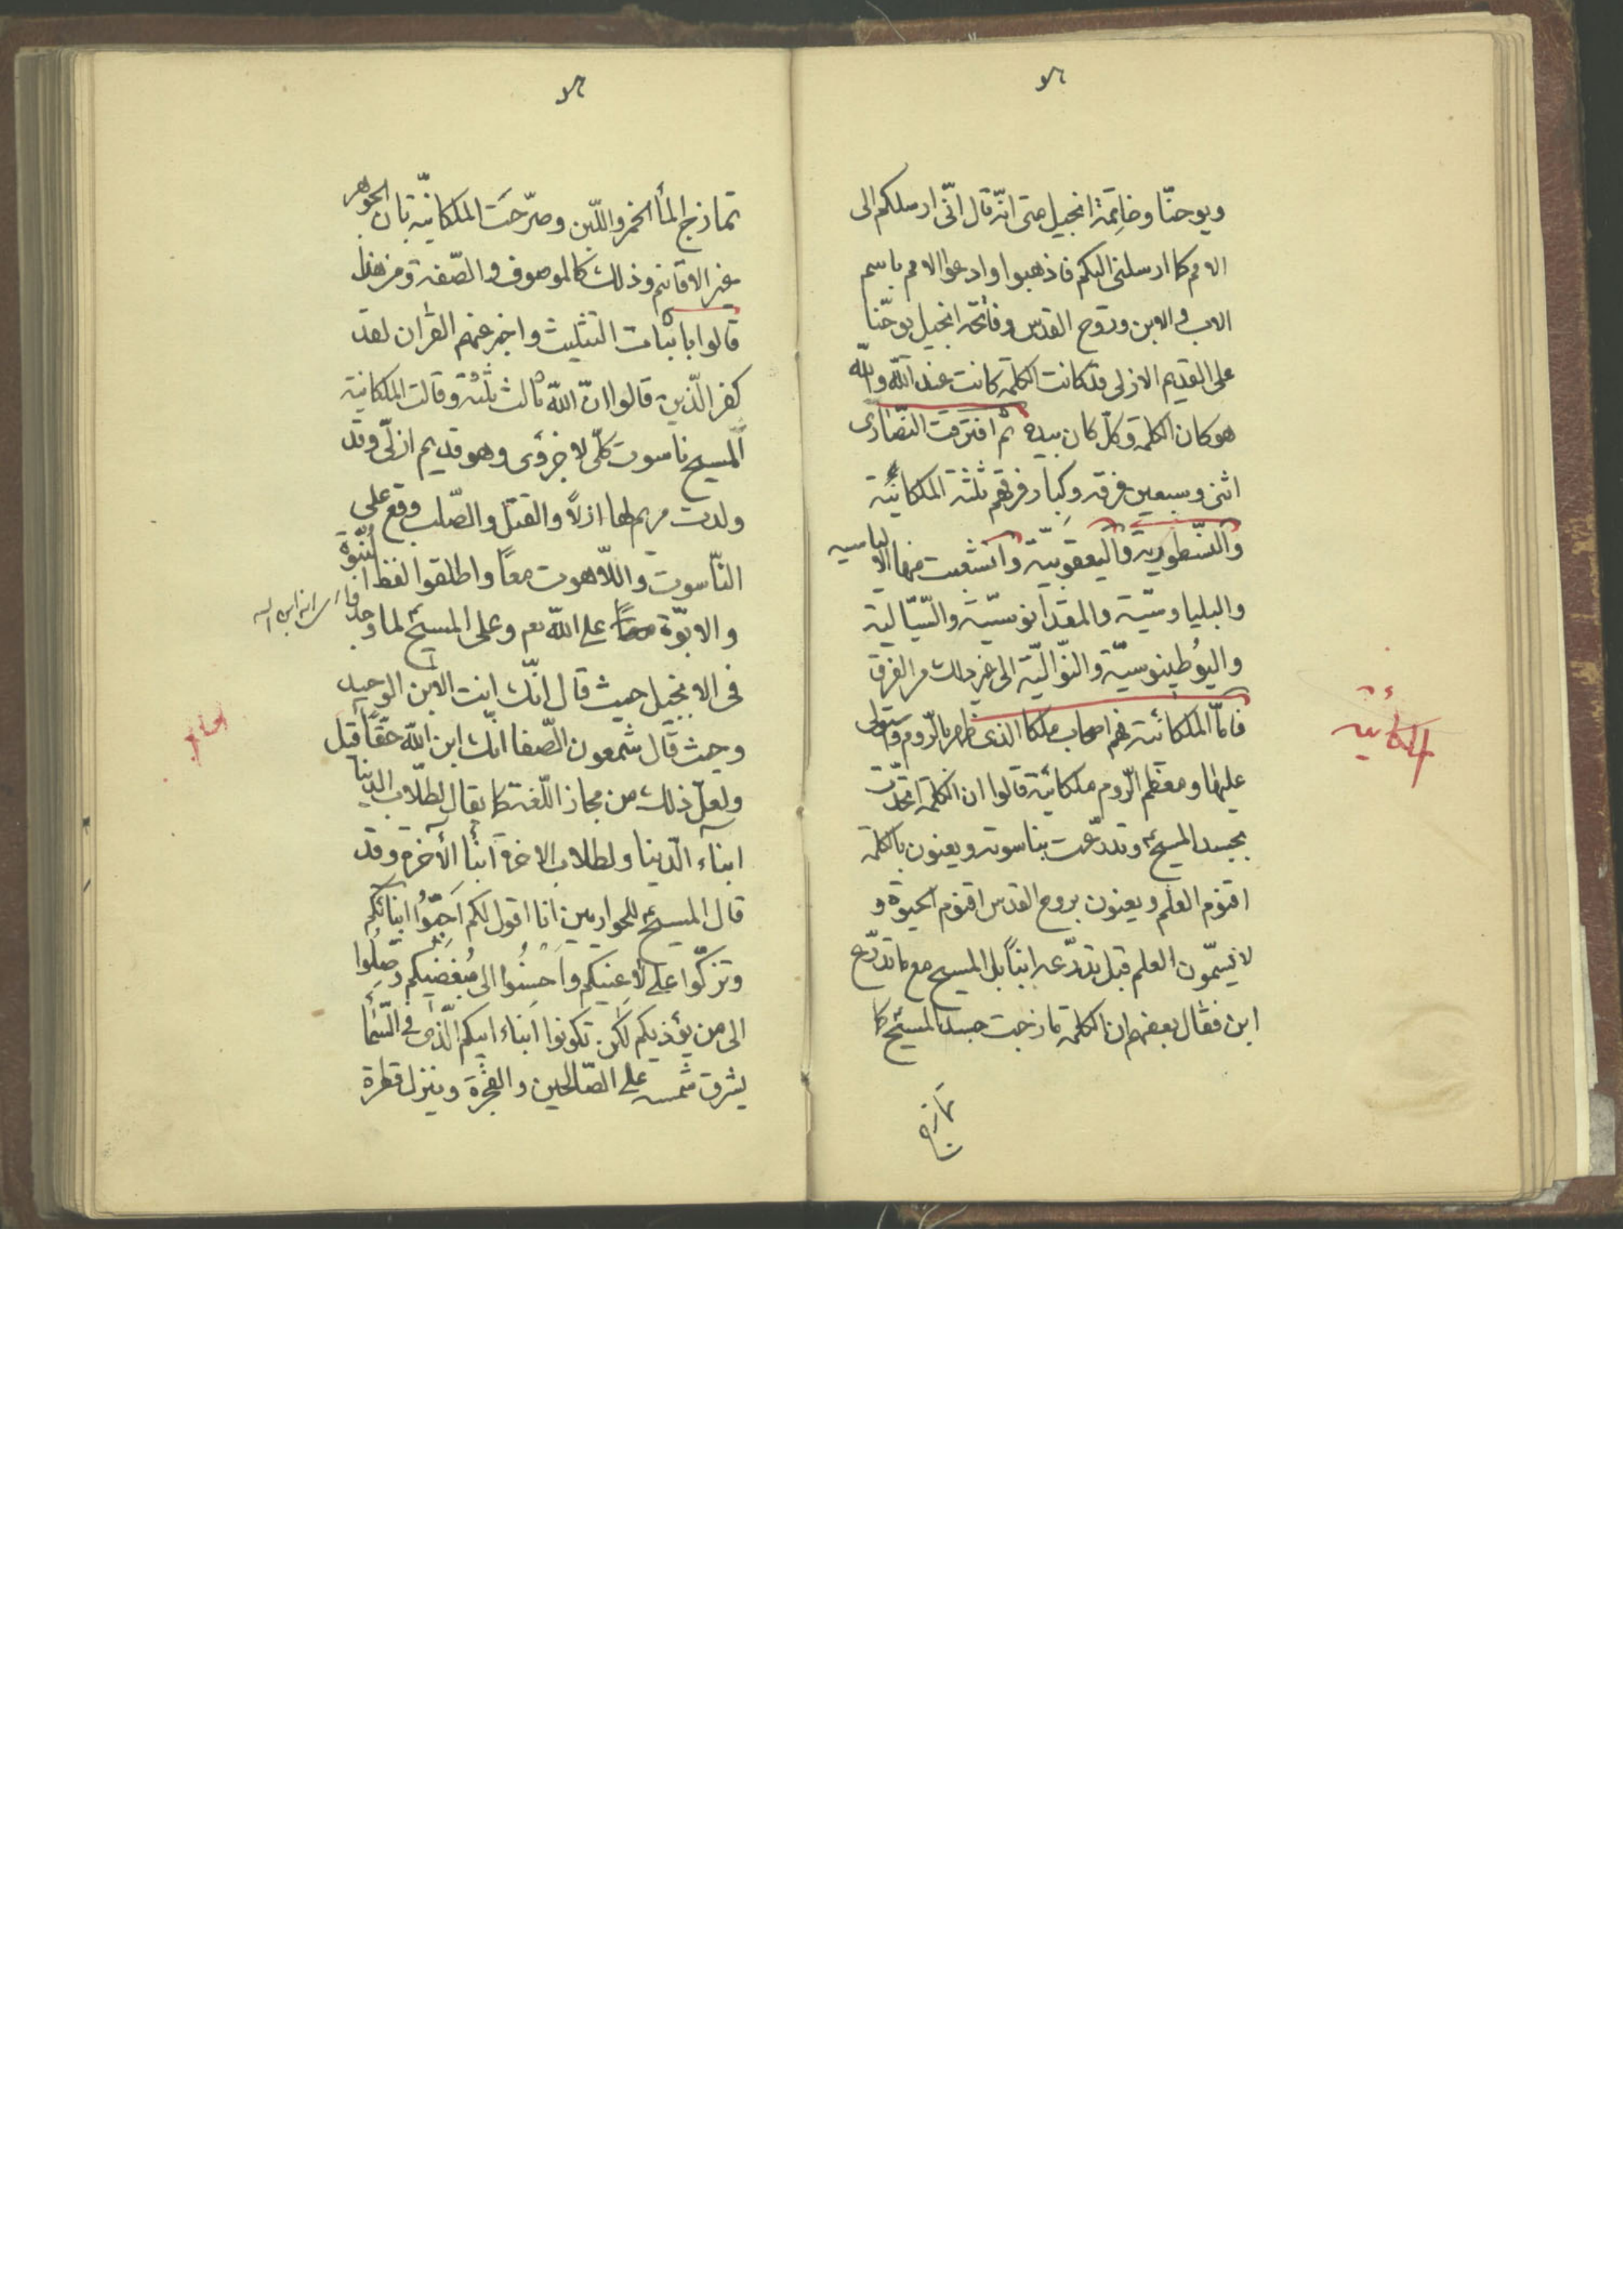 ويوحنّا وخاتمة انجيل متى انّه قال انّى ارسلكم الى
الامم كما ارسلنى اليكم فاذهبوا وادعوا الامم باسم
الاب و الابن وروح القدس وفاتحة انجيل يوحنّا
على القديم الازلى قد كانت الكلمة كانت عند الله والله
هو كان الكلمة وكلّ كان بيده ثم افترقت النّصارى
اثنى وسبعين فرقة وكبار فرقهم ثلثة الملكائيّة
والنّسطوريّة واليعقوبيّة وانشعبت منها الاليانيسيه
والبليارسيّة والمقدانوسيّة والسّبّالية
واليوطينوسيّة والبّوالّيّة الى غير ذلك من الفرق
الملكائيّة
فامّا الملكائيّة فهم اصحاب ملكا الذى ظهر بالرّوم واستولى
عليها ومعظم الرّوم ملكائيّة قالوا ان الكلمة اتحدّت
بجسد المسيح وتدرّعت بناسوته ويعنون بالكلمة
اقنوم العلم ويعنون بروح القدس اقنوم الحيوة و
لا يسمّون العلم قبل تدرّعه ابناً بل المسيح مع ما تدرّع
ابن فقال بعضهم ان الكلمة مازجت جسد المسيح كما
تمازج
تمازج الماء الخمر واللّبن وصرّحت الملكانيّة بان الجوهر
غير الاقانيم وذلك كالموصوف والصّفة ومن هذا
قالوا باثبات التثليث واخبر عنهم القران لقد
كفر الّذين قالوا انّ الله ثالث ثلثة وقالت الملكانية
المسيح ناسوت كلّى لا جزوى وهو قديم ازلّى وقد
ولدت مريم الها ازلاً والقتل والصّلب وقع على
النّاسوت واللّاهوت معاً واطلقوا لفظ البنوّة
والابوّة على الله تعم وعلى المسيح لما وجدوا
فى الانجيل حيث قال انّك انت الابن الوحيد
وحيث قال شمعون الصّفا انّك ابن الله حقّاً قيل
ولعلّ ذلك من مجاز اللّغة كما يقال لطلّاب الدنيا
ابناء الدّنيا ولطلاب الاخرة ابناء الآخرة وقد
قال المسيح للحواريين انا اقول لكم احبّوا ابنائكم
وتزكّوا على لاعنيكم واحسنوا الى مبغضيكم وصلوا
الى من يؤذيكم لكى تكونوا ابناء ابيكم الّذى فى السّماء
يشرق شمسه على الصّالحين والفجرة وينزل قطرة